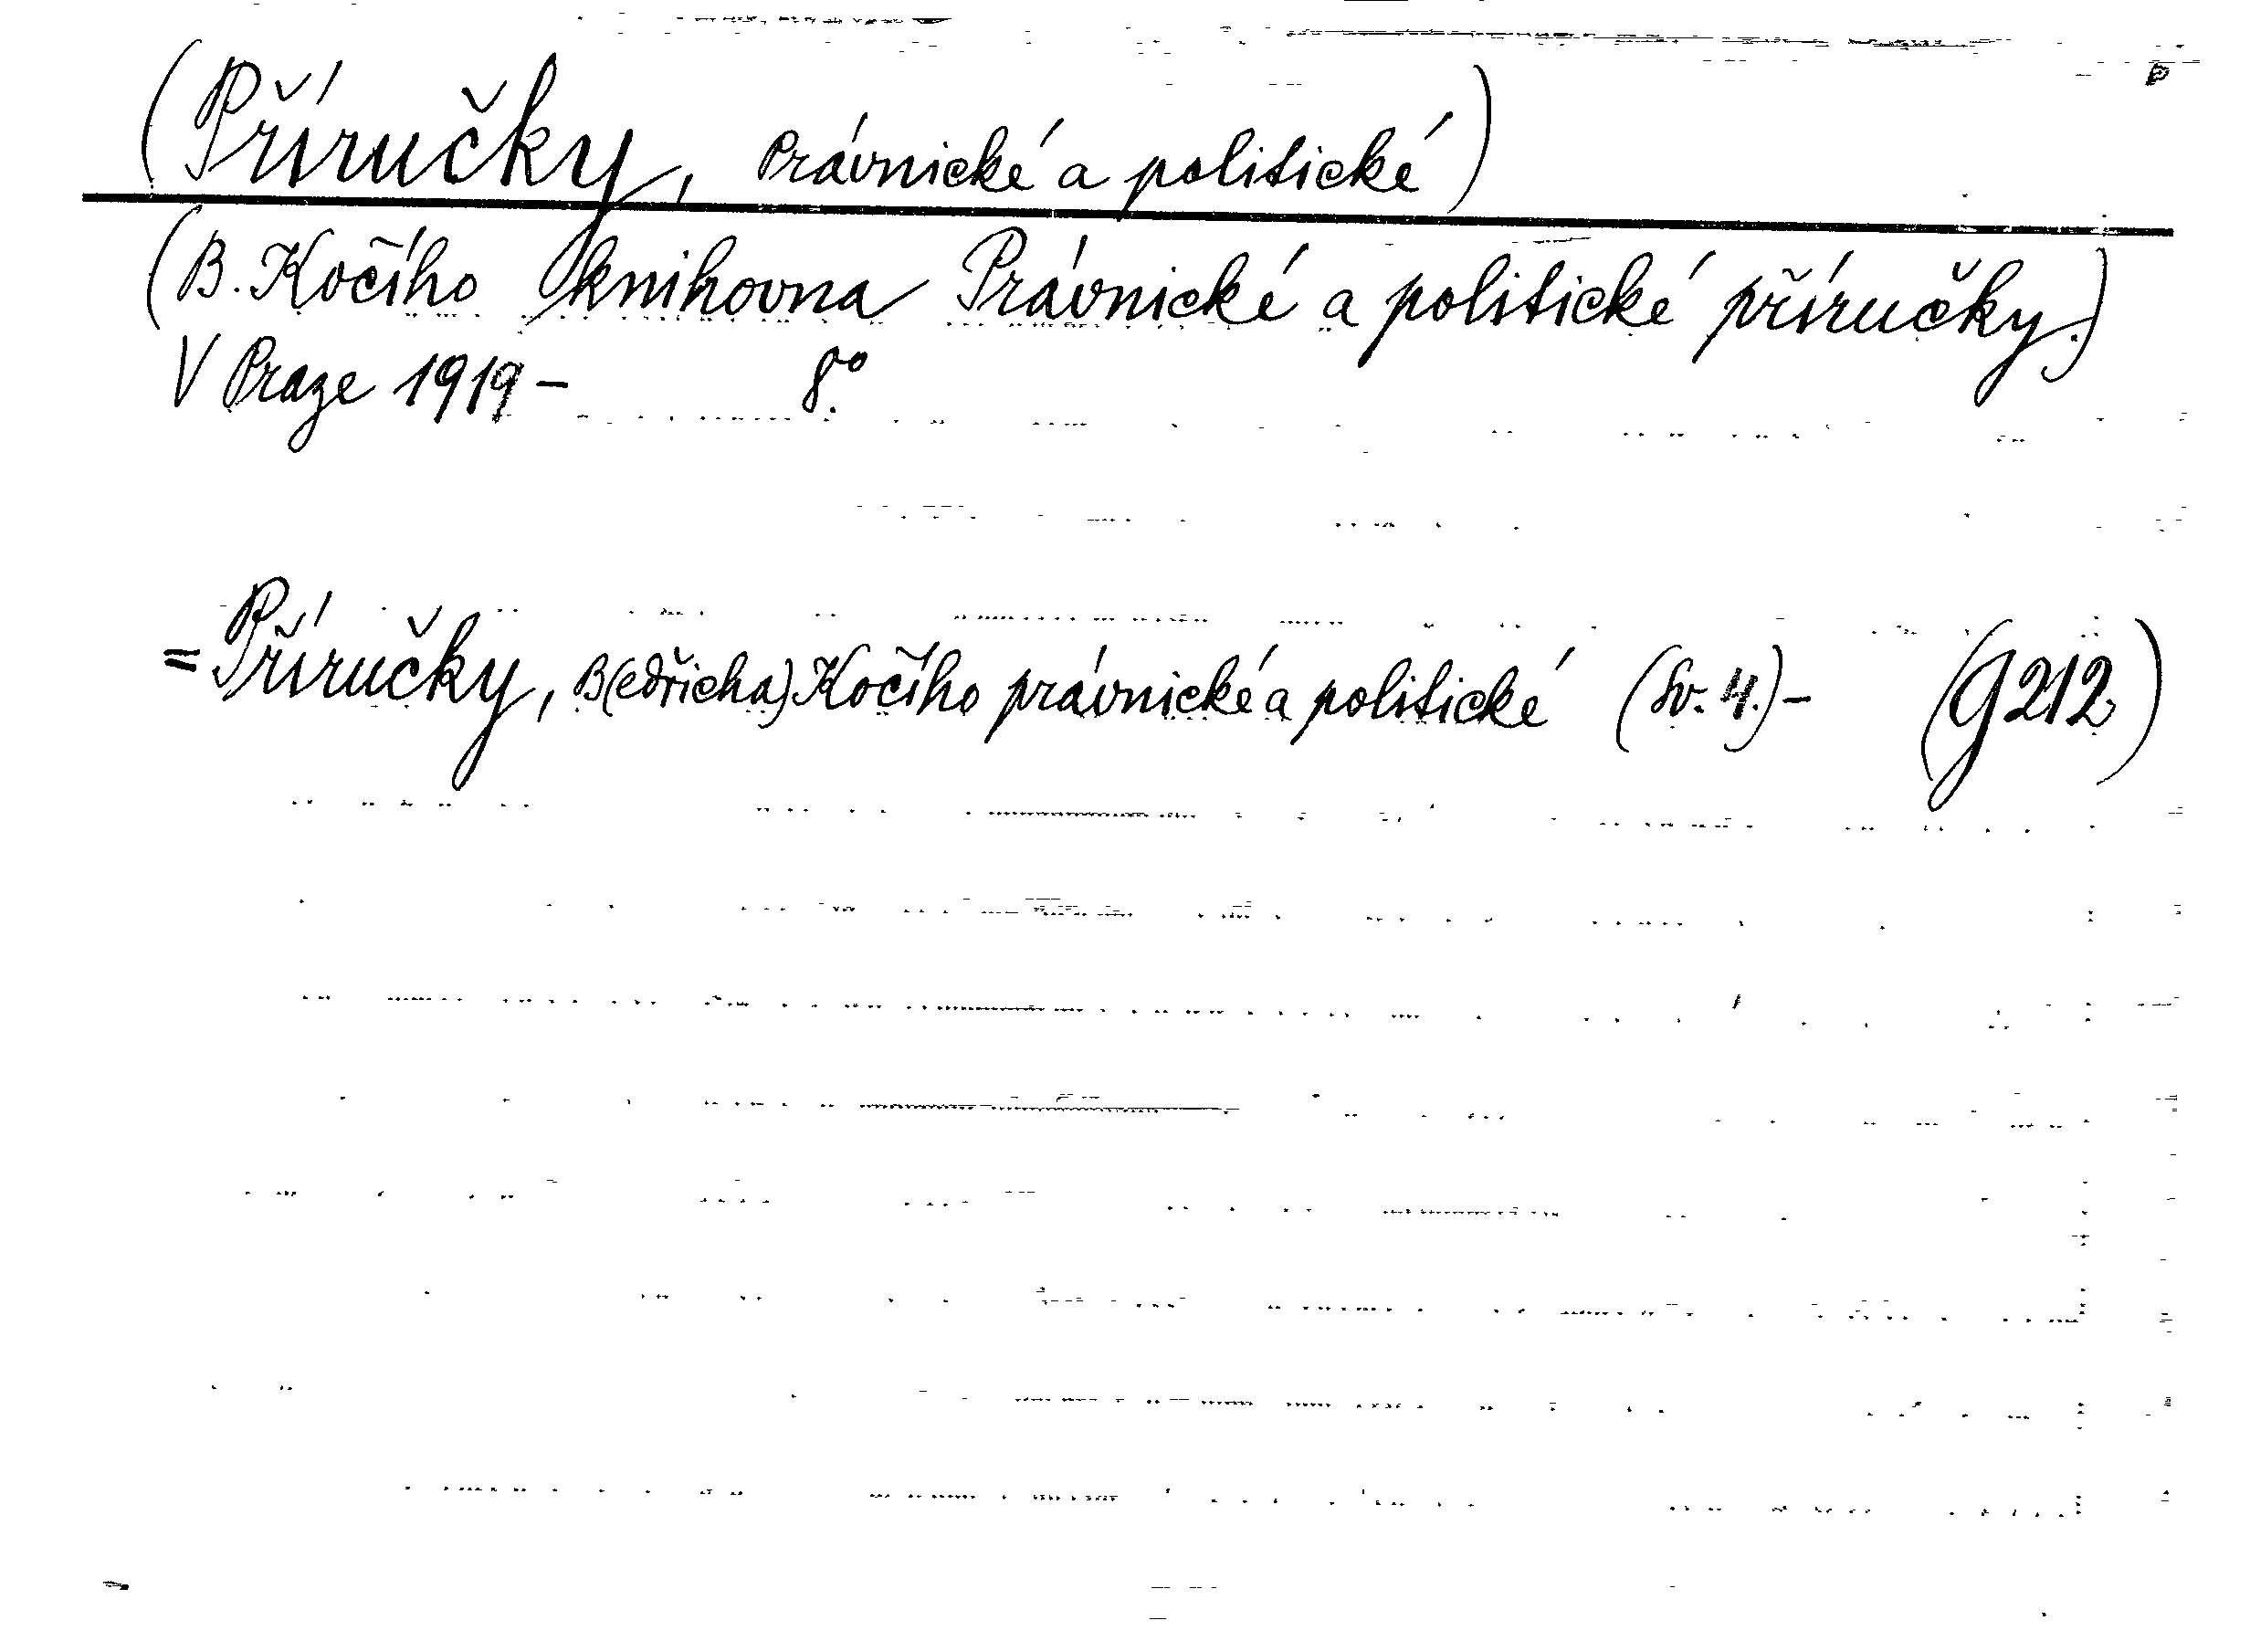 (Příručky, Právnické a politické)
(B. Kočího knihovna Právnické a politické příručky.)
V Praze 1919 – 8°.
= Příručky, B(edřicha) Kočího právnické a politické (Sv. 4.) – (G 212)